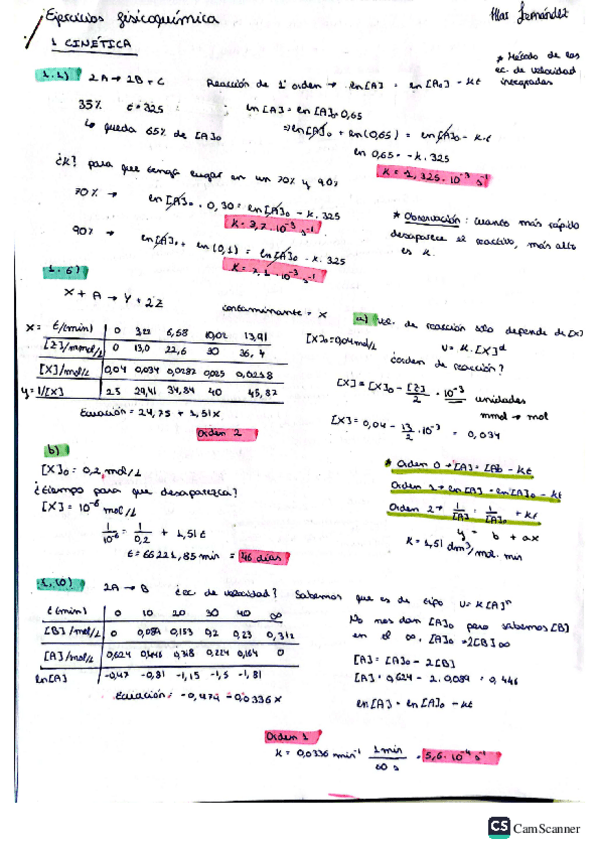 Ejercicios fisicoquímica
Mar Fernández
1 CINÉTICA
* Método de las ec. de velocidad integradas
1.1) 2A → 2B + C
Reacción de 1º orden → ln[A] = ln[A]₀ - kt
35% t = 325
ln[A] = ln[A]₀ 0,65
↳ queda 65% de [A]₀
⇒ ln[A]₀ + ln(0,65) = ln[A]₀ - k·t
ln 0,65 = -k · 325
k = 1,325·10⁻³ s⁻¹
¿k? para que tenga lugar en un 70% y 90%
70% → ln[A]₀ · 0,30 = ln[A]₀ - k. 325
k = 3,7·10⁻³ s⁻¹
90% → ln[A]₀ + ln(0,1) = ln[A]₀ - k. 325
k = 7,1·10⁻³ s⁻¹
* Observación: cuanto más rápido
desaparece el reactivo, más alto
es k.
1.6)
X + A → Y + 2Z
contaminante = X
X = t/(min) 0 3,22 6,58 10,02 13,91
[Z]/mmol/L 0 13,0 22,6 30 36,4
[X]/mol/L 0,04 0,034 0,0287 0,025 0,0218
y = 1/[X] 25 29,41 34,84 40 45,87
Ecuación = 24,75 + 1,51x
Orden 2
a) ec. de reacción sólo depende de [X]
[X]₀ = 0,04 mol/L
v = k.[X]^α
¿orden de reacción?
[X] = [X]₀ - [Z]/2 · 10⁻³ unidades
mmol → mol
[X] = 0,04 - 13/2 · 10⁻³ = 0,034
* Orden 0 → [A] = [A]₀ - kt
Orden 1 → ln[A] = ln[A]₀ - kt
Orden 2 → 1/[A] = 1/[A]₀ + kt
y = b + ax
k = 1,51 dm³/mol. min
b)
[X]₀ = 0,2 mol/L
¿tiempo para que desaparezca?
[X] = 10⁻⁶ mol/L
1/10⁻⁶ = 1/0,2 + 1,51 t
t = 662251,85 min = 46 días
1.10) 2A → B ¿ec. de velocidad? Sabemos que es de tipo v = k[A]ⁿ
t(min) 0 10 20 30 40 ∞
[B]/mol/L 0 0,089 0,153 0,2 0,23 0,312
[A]/mol/L 0,624 0,446 0,318 0,224 0,164 0
ln[A] -0,47 -0,81 -1,15 -1,5 -1,81
Ecuación = -0,474 - 0,0336x
No nos dan [A]₀ pero sabemos [B]
en el ∞, [A]₀ = 2[B]∞
[A] = [A]₀ - 2[B]
[A] = 0,624 - 2. 0,089 = 0,446
ln[A] = ln[A]₀ - kt
Orden 1
k = 0,0336 min⁻¹ 1min/60 s = 5,6·10⁻⁴ s⁻¹
CS CamScanner